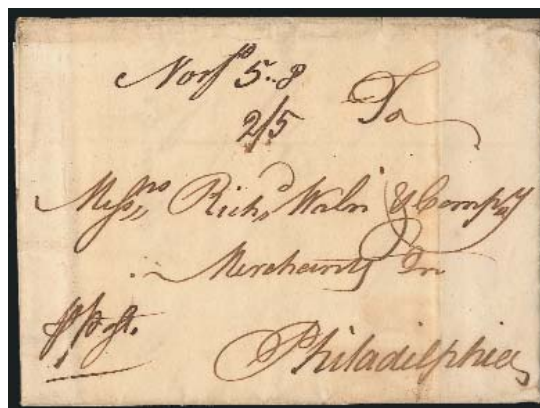 Norf^k 5..8
2/5 To
Mess^rs Rich^d Waln & Comp^y
Merchants In
p Post.
Philadelphia